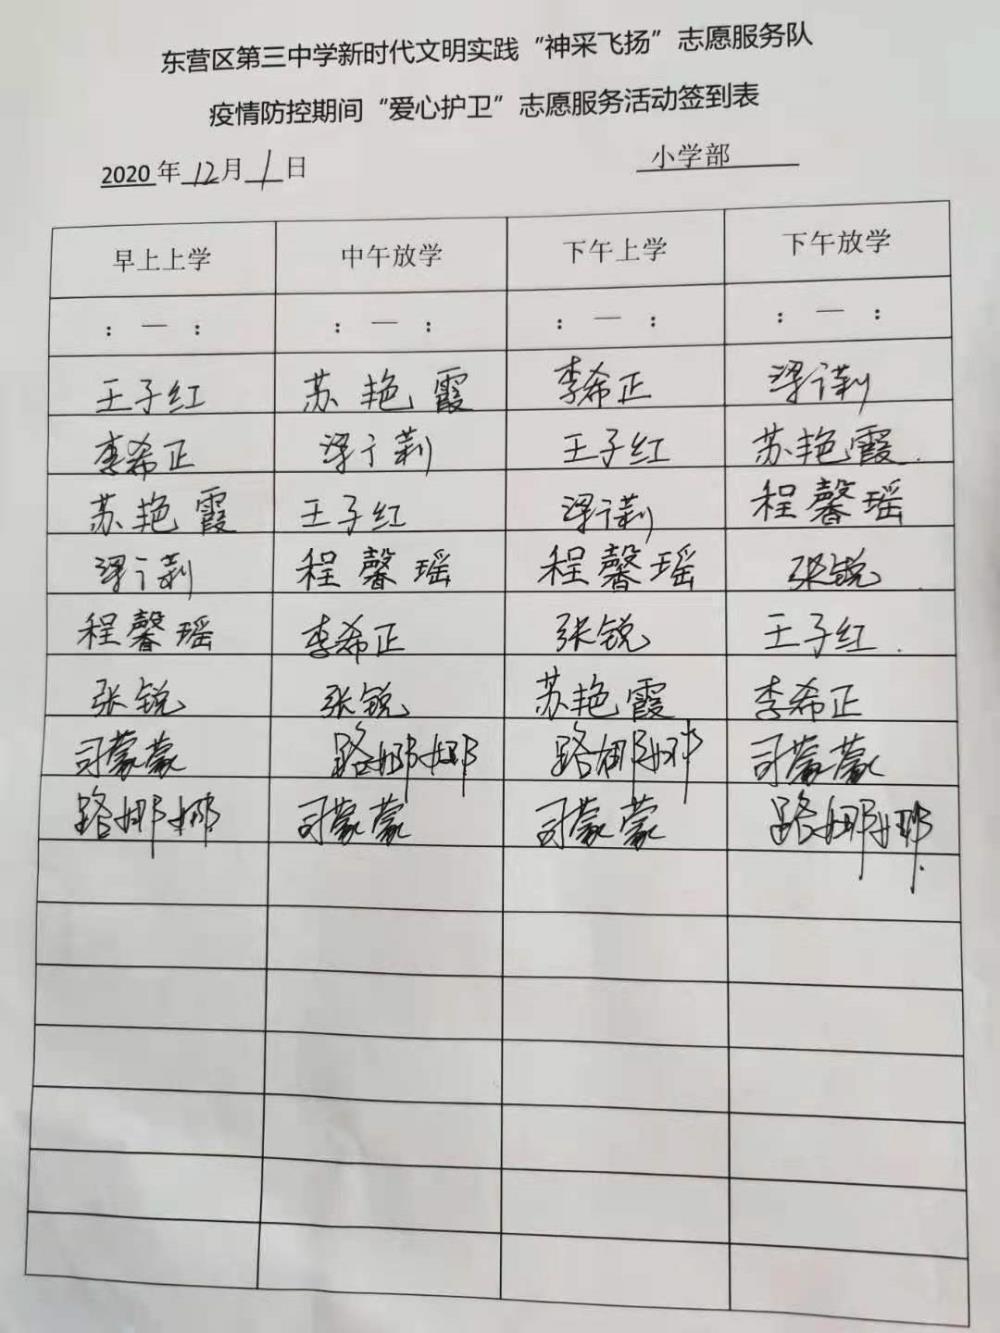 东营区第三中学新时代文明实践“神采飞扬”志愿服务队
疫情防控期间“爱心护卫”志愿服务活动签到表
2020年12月1日 小学部
早上上学 中午放学 下午上学 下午放学
：—： ：—： ：—： ：—：
王子红 苏艳霞 李希正 梁
李希正 梁 王子红 苏艳霞.
苏艳霞 王子红 梁 程馨瑶
梁 程馨瑶 程馨瑶 张锐.
程馨瑶 李希正 张锐 王子红.
张锐 张锐 苏艳霞 李希正
司蒙蒙 路娜娜 路娜娜 司蒙蒙
路娜娜 司蒙蒙 司蒙蒙 路娜娜.